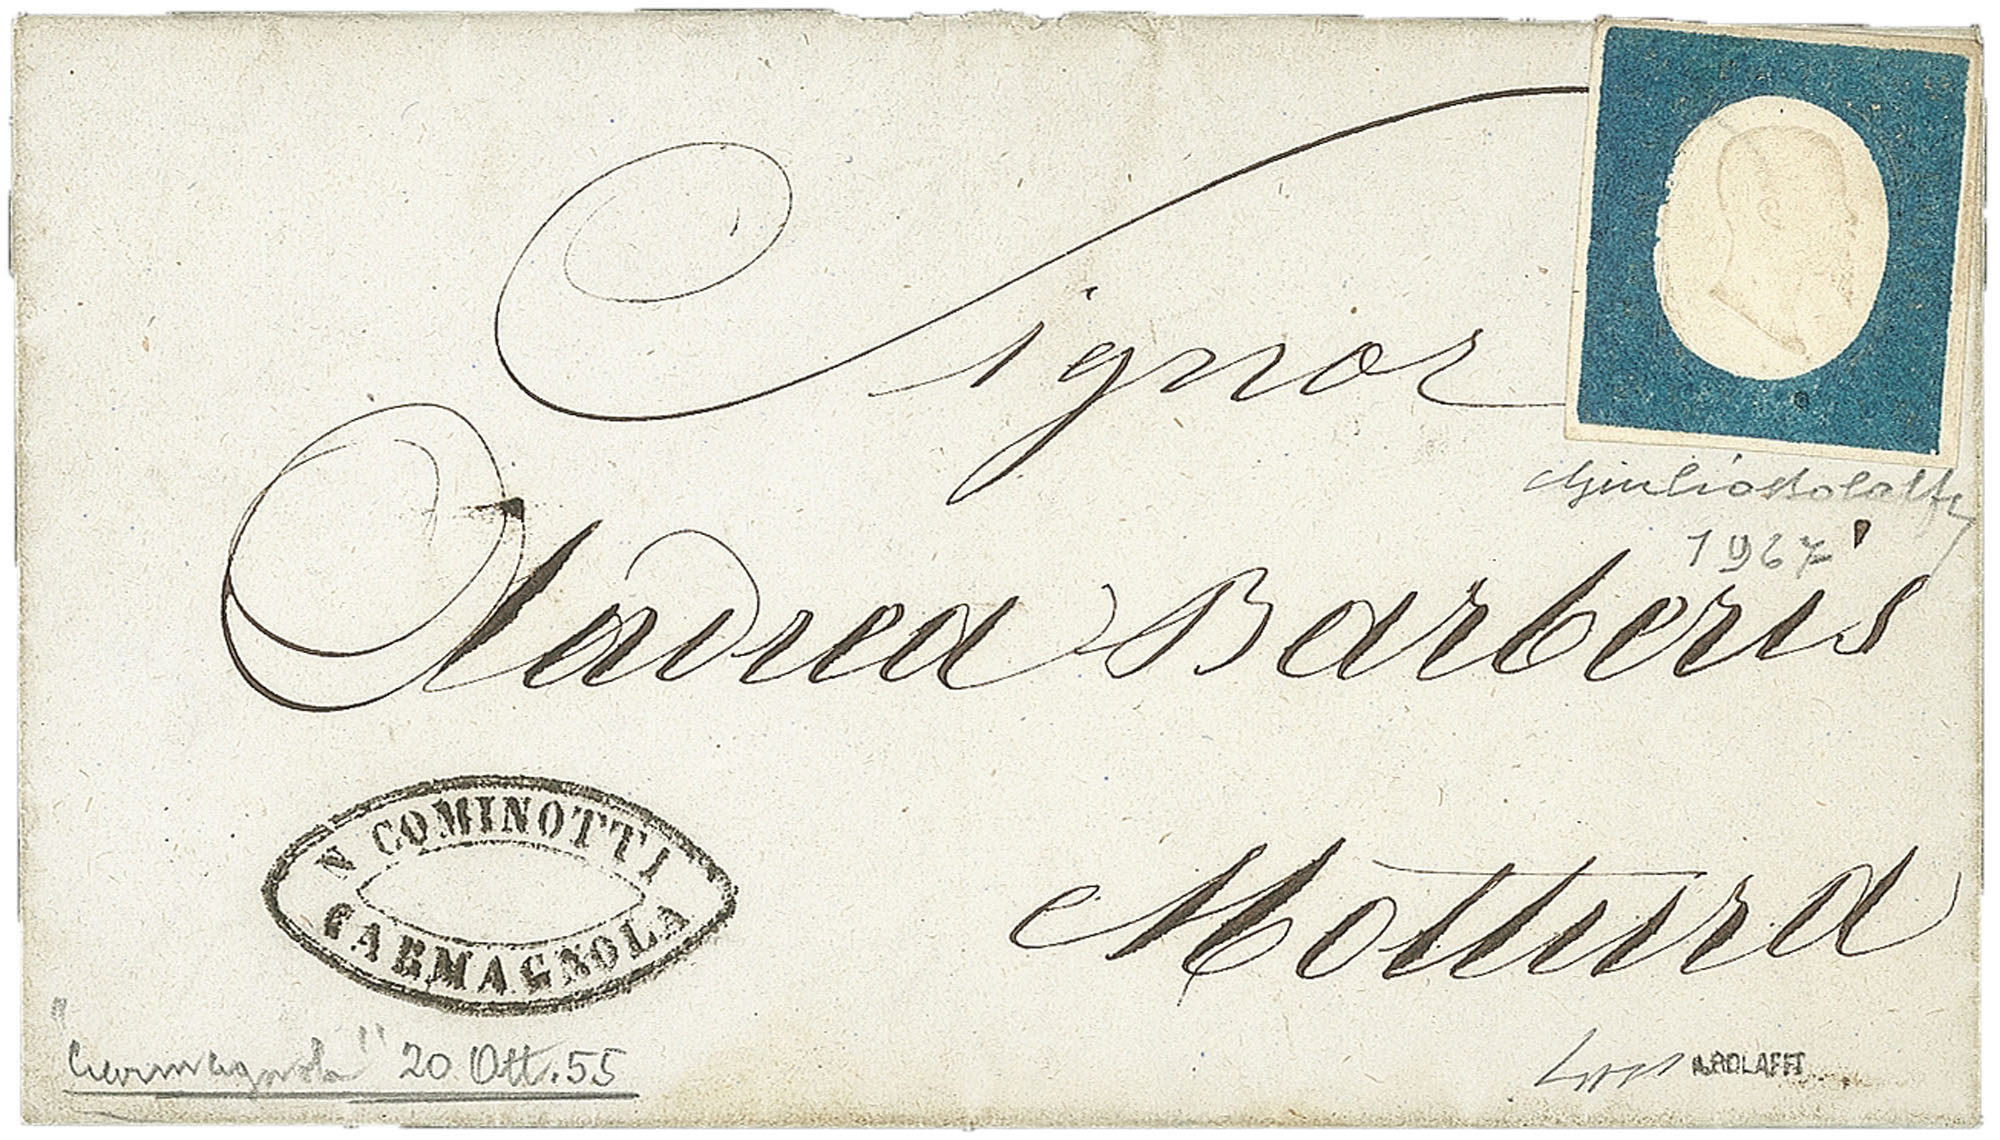 Signor
Giulio Bolaffi
1967
Andrea Barberis
N COMINOTTI
CARMAGNOLA
Mottura
"Carmagnola" 20 Ott. 55
A. BOLAFFI